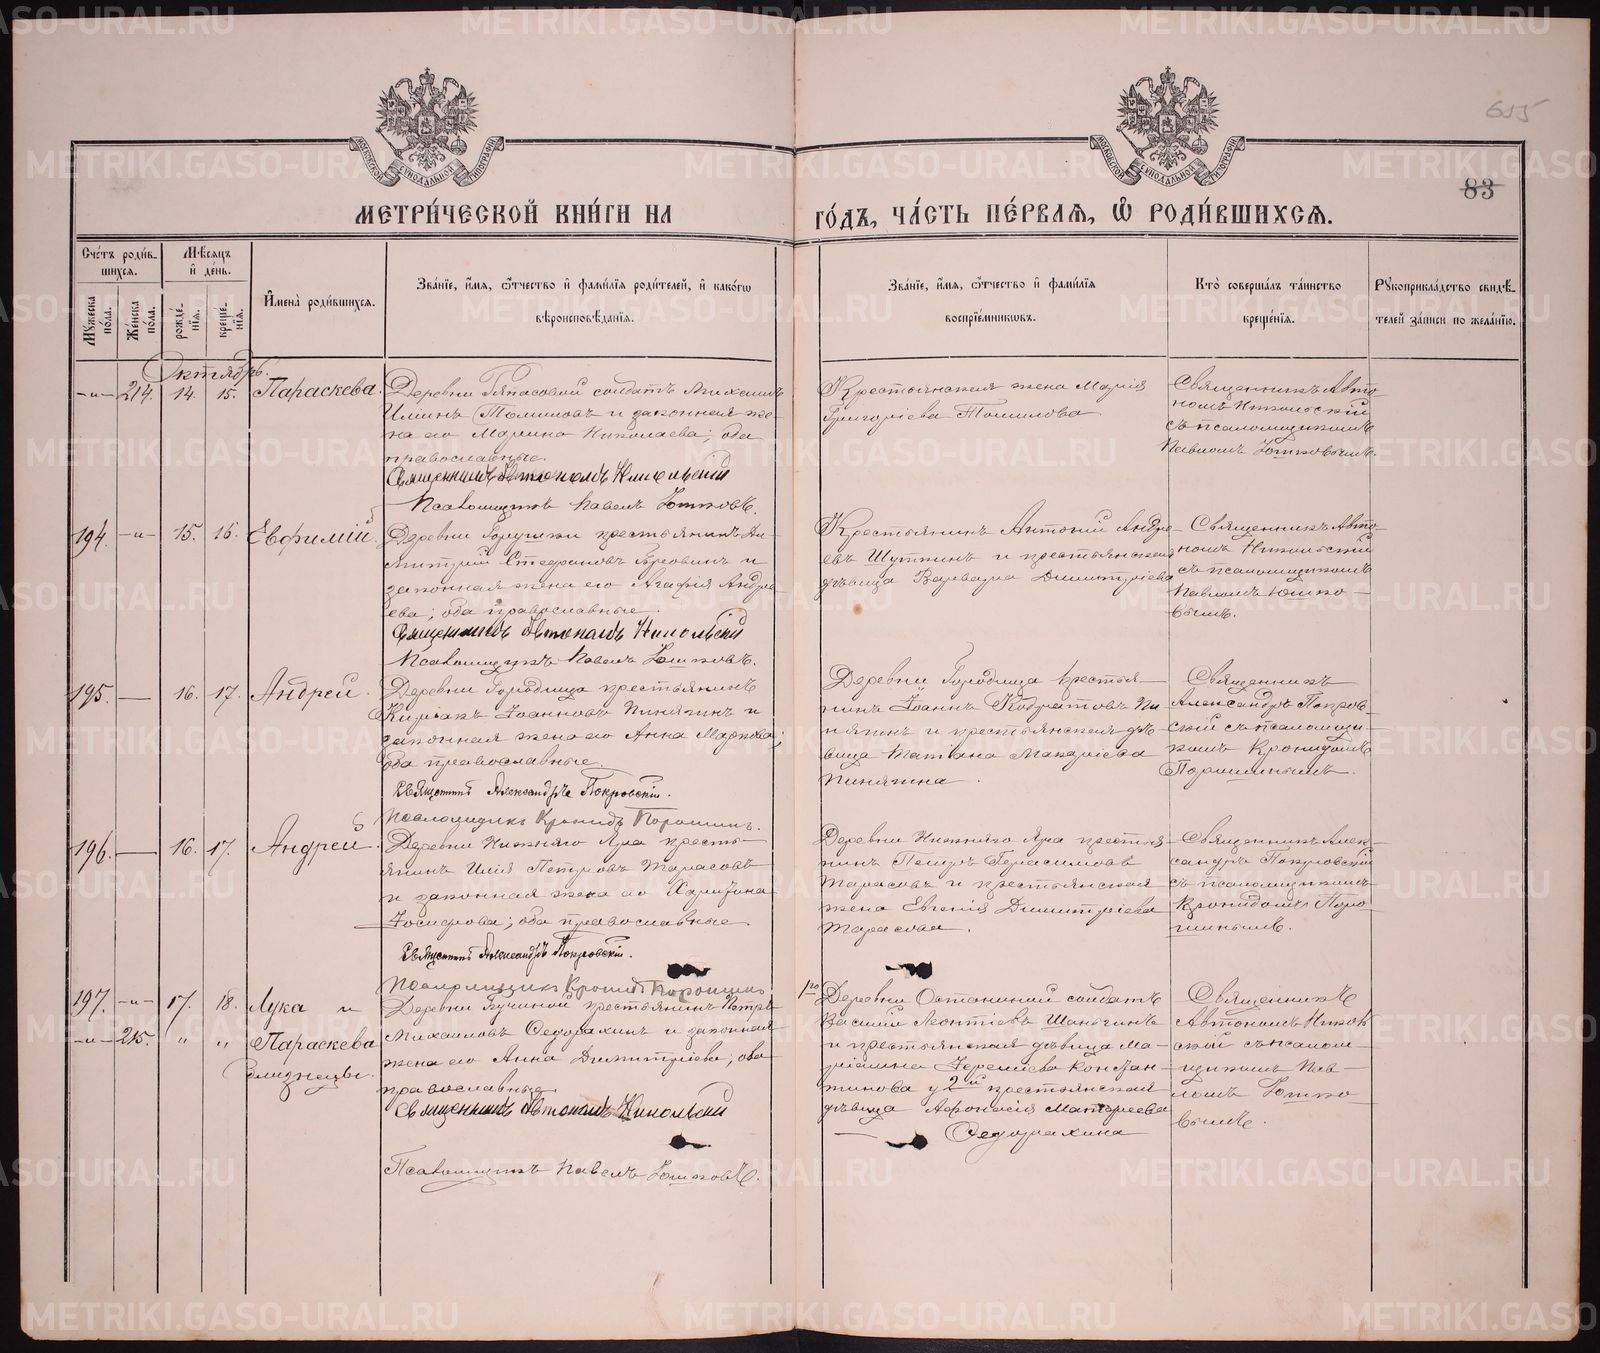 655
83
МЕТРИ́ЧЕСКОЙ КНИ́ГИ НА ГО́ДЪ, ЧА́СТЬ ПЕ́РВАѦ, Ѿ РОДИ́ВШИХСѦ.
МОСКОВСКОЙ СѴНОДАЛЬНОЙ ТИПОГРАФІИ
МОСКОВСКОЙ СѴНОДАЛЬНОЙ ТИПОГРАФІИ
Сче́тъ роди́в-
шихсѧ.
Мѣ́сѧцъ
и҆ де́нь.
Мꙋ́жеска
по́ла.
Же́нска
по́ла.
рожде́-
нїѧ.
креще́-
нїѧ.
И҆мена̀ роди́вшихсѧ.
Зва́нїе, и҆́мѧ, ѻ҆́тчество и҆ фами́лїѧ роди́телей, и҆ како́гѡ
вѣроисповѣ́данїѧ.
Зва́нїе, и҆́мѧ, ѻ҆́тчество и҆ фами́лїѧ
воспрїе́мникѡвъ.
Кто̀ соверша́лъ та́инство
креще́нїѧ.
Рꙋкоприкла́дство свидѣ́-
телей за́писи по жела́нїю.
Октябрь.
-"- 214. 14. 15. Параскева.
солдатъ Михаилъ
Ильинъ Томиловъ и законная же-
на его Марина Николаева; оба
православные.
Священникъ Автономъ Никольскій
Псаломщикъ Павелъ Юшковъ.
Крестьянская жена Марія
Григоріева Томилова
Священникъ Авто
номъ Никольскій
съ псаломщикомъ
Павломъ Юшковымъ.
194. -"- 15. 16. Евфимій.
Деревни крестьянинъ Ди-
митрій Стефановъ и
законная жена его Агафія Андре
ева; оба православные.
Священникъ Автономъ Никольскій
Псаломщикъ Павелъ Юшковъ.
Крестьянинъ Антоній Андре-
евъ Шуткинъ и крестьянская
дѣвица Варвара Димитріева
Священникъ Авто
номъ Никольскій
съ псаломщикомъ
Павломъ Юшко-
вымъ.
195. — 16. 17. Андрей.
Деревни Городища крестьянинъ
Киріакъ Іоанновъ Пинягинъ и
законная жена его Анна Маркова;
оба православные.
Священникъ Александръ Покровскій.
Псаломщикъ Кронидъ Порошинъ.
Деревни Городища крестья-
нинъ Іоаннъ Кодратовъ Пи
нягинъ и крестьянская дѣ-
вица Татіана Макаріева
Пинягина.
Священникъ
Александръ Покров-
скій съ псаломщи-
комъ Кронидомъ
Порошинымъ.
196. — 16. 17. Андрей.
Деревни Нижняго Яра кресть-
янинъ Илія Петровъ Тарасовъ
и законная жена его Харитина
Іосифова; оба православные
Священникъ Александръ Покровскій.
Псаломщикъ Кронидъ Порошинъ
Деревни Нижняго Яра крестья
нинъ Петръ Герасимовъ
Тарасовъ и крестьянская
жена Евгенія Димитріева
Тарасова.
Священникъ Алек-
сандръ Покровскій
съ псаломщикомъ
Кронидомъ Поро-
шинымъ.
197. -"- 17. 18. Лука и
-"- 215. " " Параскева
близнецы.
Деревни крестьянинъ Петръ
Михаиловъ Седорахинъ и законная
жена его Анна Димитріева, оба
православные
Священникъ Автономъ Никольскій
Псаломщикъ Павелъ Юшковъ.
Деревни солдатъ
Василій Леонтіевъ Шанчинъ
и крестьянская дѣвица Ма-
Іереміева Констан-
тинова у 2й крестьянская
дѣвица Афанасія
Седорахина
Священникъ
Автономъ Николь
скій съ псалом-
щикомъ Пав-
ломъ Юшко
вымъ.